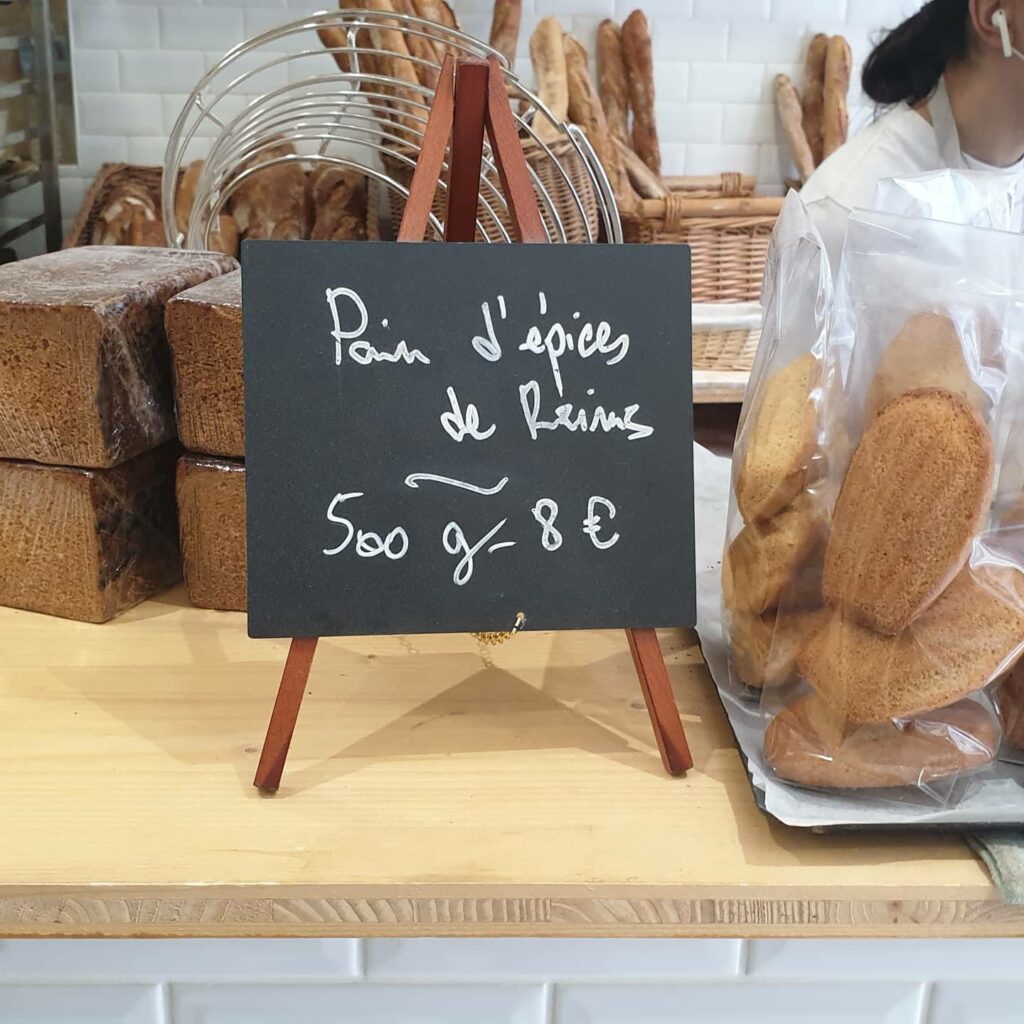 Pain d'épices
de Reims
~
500 g - 8 €